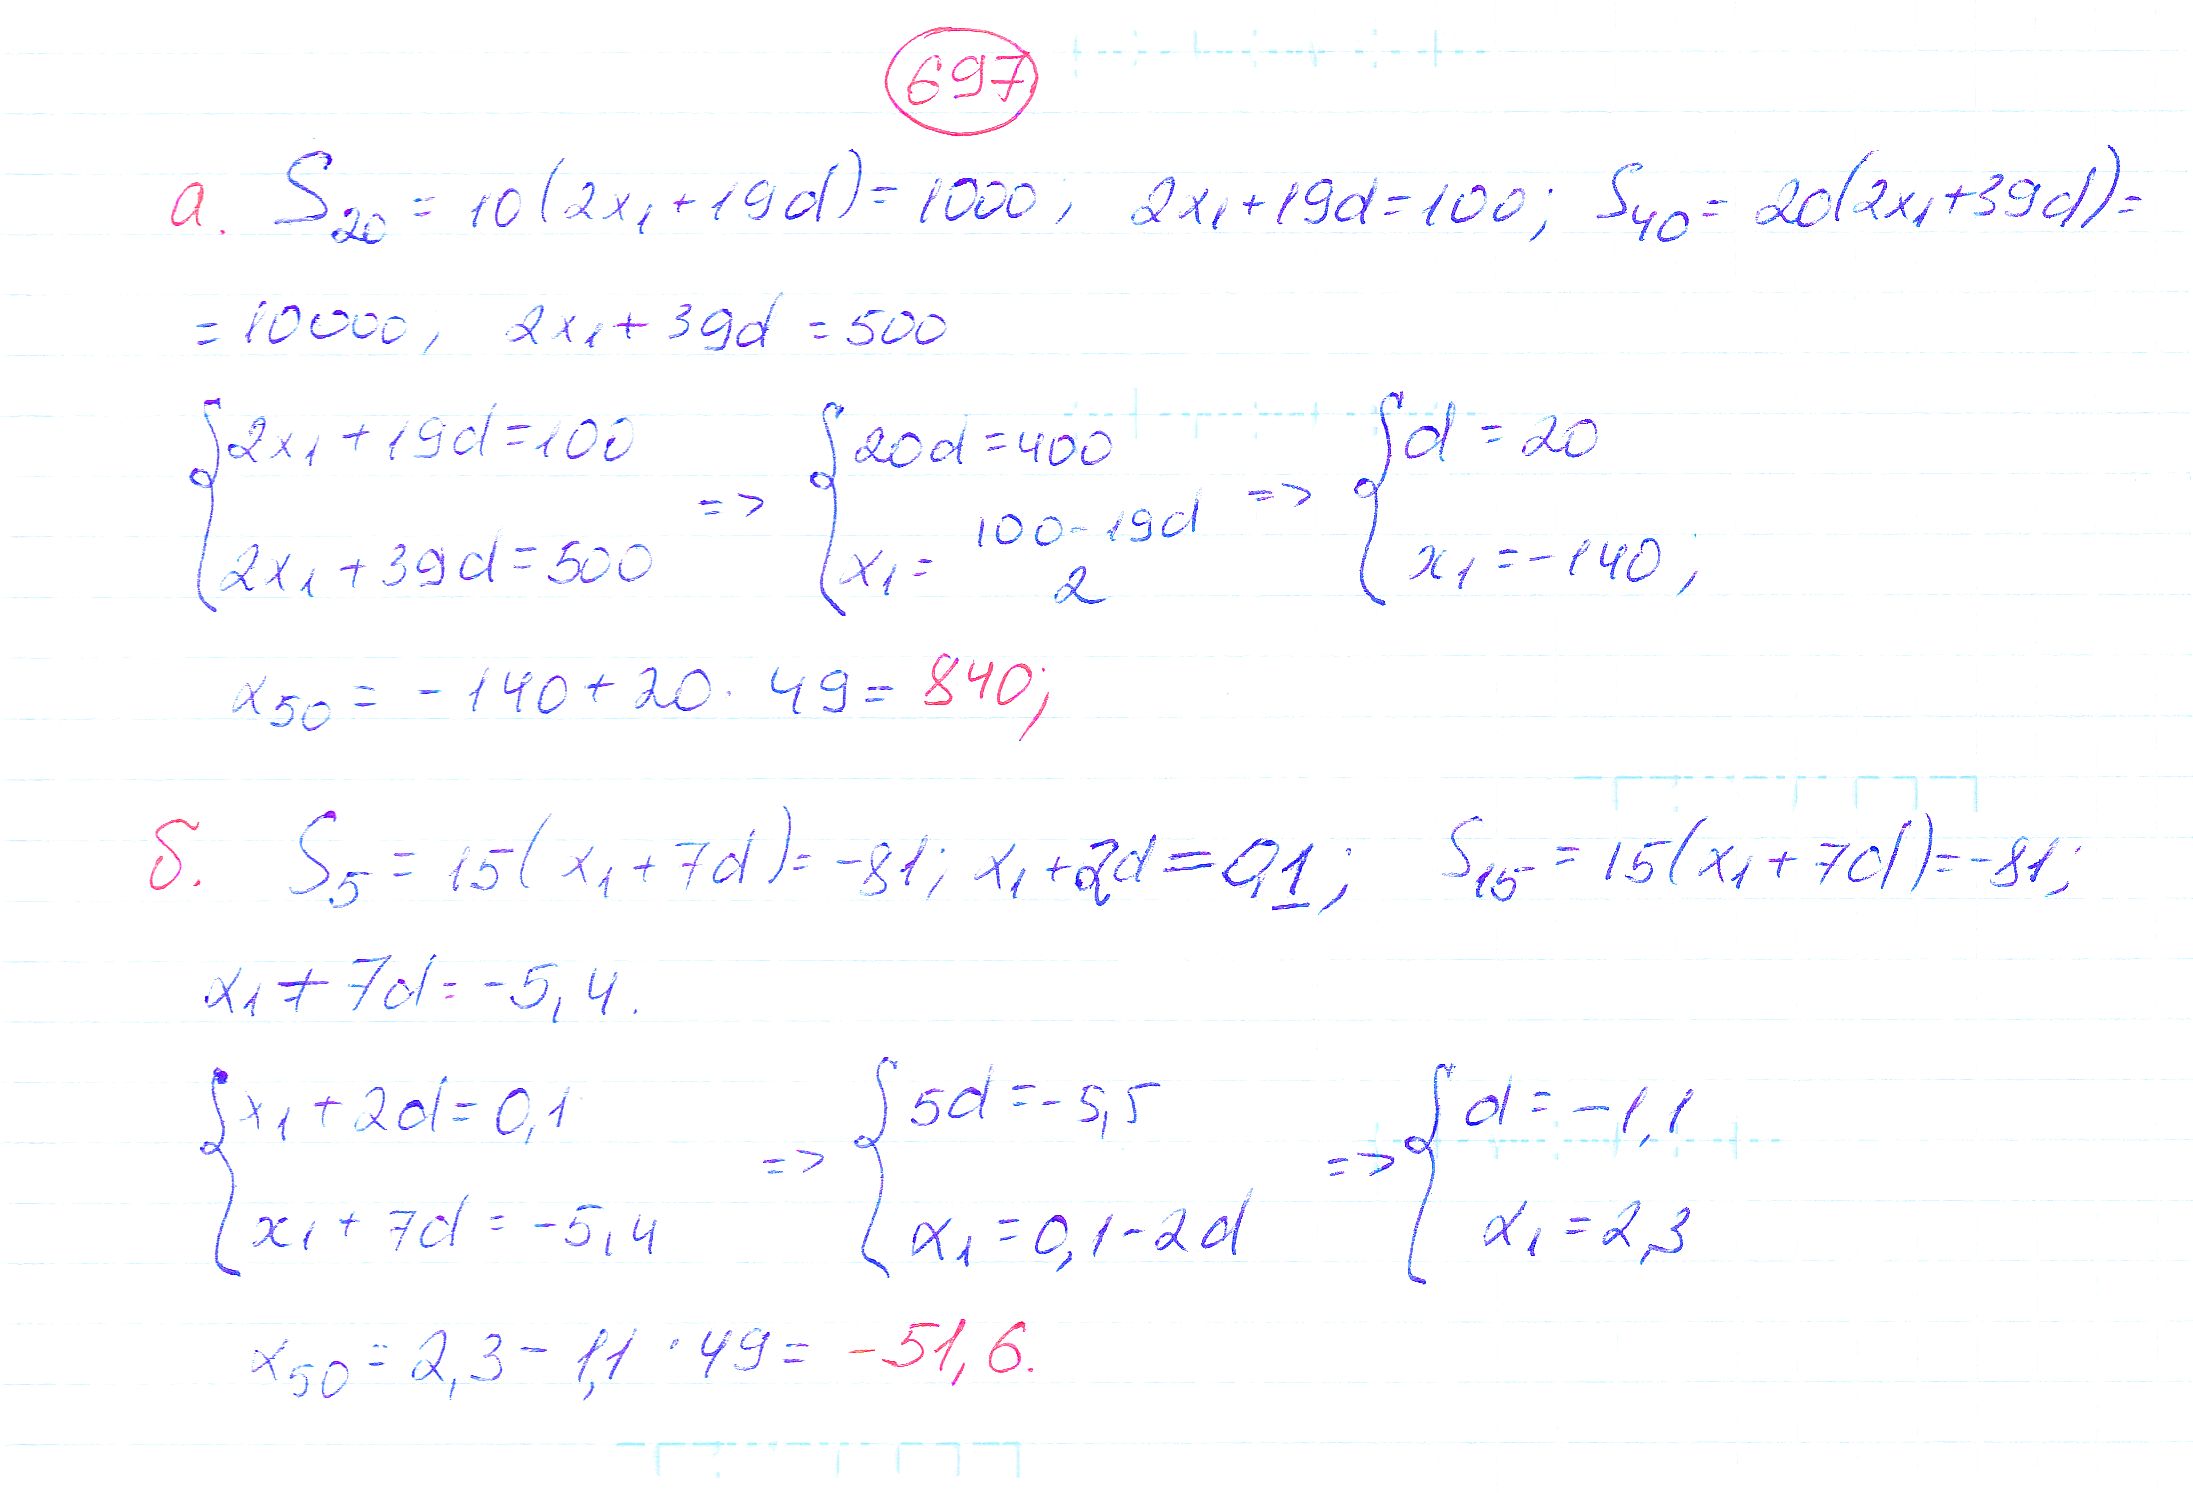 697
а. S₂₀ = 10(2x₁+19d)=1000, 2x₁+19d=100; S₄₀= 20(2x₁+39d)=
= 10000, 2x₁+39d=500
{2x₁+19d=100 {20d=400 {d=20
=> =>
{2x₁+39d=500 {x₁= (100-19d)/2 {x₁=-140;
x₅₀ = -140+20·49= 840;
б. S₅=15(x₁+7d)=-81; x₁+2d=0,1; S₁₅=15(x₁+7d)=-81;
x₁+7d=-5,4.
{x₁+2d=0,1 {5d=-5,5 {d=-1,1
=> =>
{x₁+7d=-5,4 {x₁=0,1-2d {x₁=2,3
x₅₀=2,3-1,1·49= -51,6.